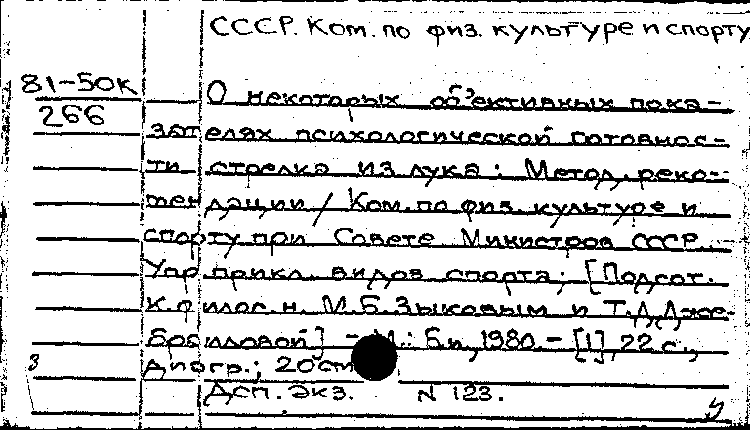 СССР. Ком. по физ. культуре и спорту
81-50К
266
О некоторых объективных пока-
зателях психологической готовнос-
ти стрелка из лука: Метод. реко-
мендации / Ком. по физ. культуре и
спорту при Совете Министров СССР.
Упр прикл. видов спорта; [Подгот.
к.филос.н. М.Б.Зыковым и Т.Д.Дже-
броиловой] - М.: Б.и., 1980. - [1], 22 с.,
диагр.; 20 см
Дсп. Экз. N 123.
3